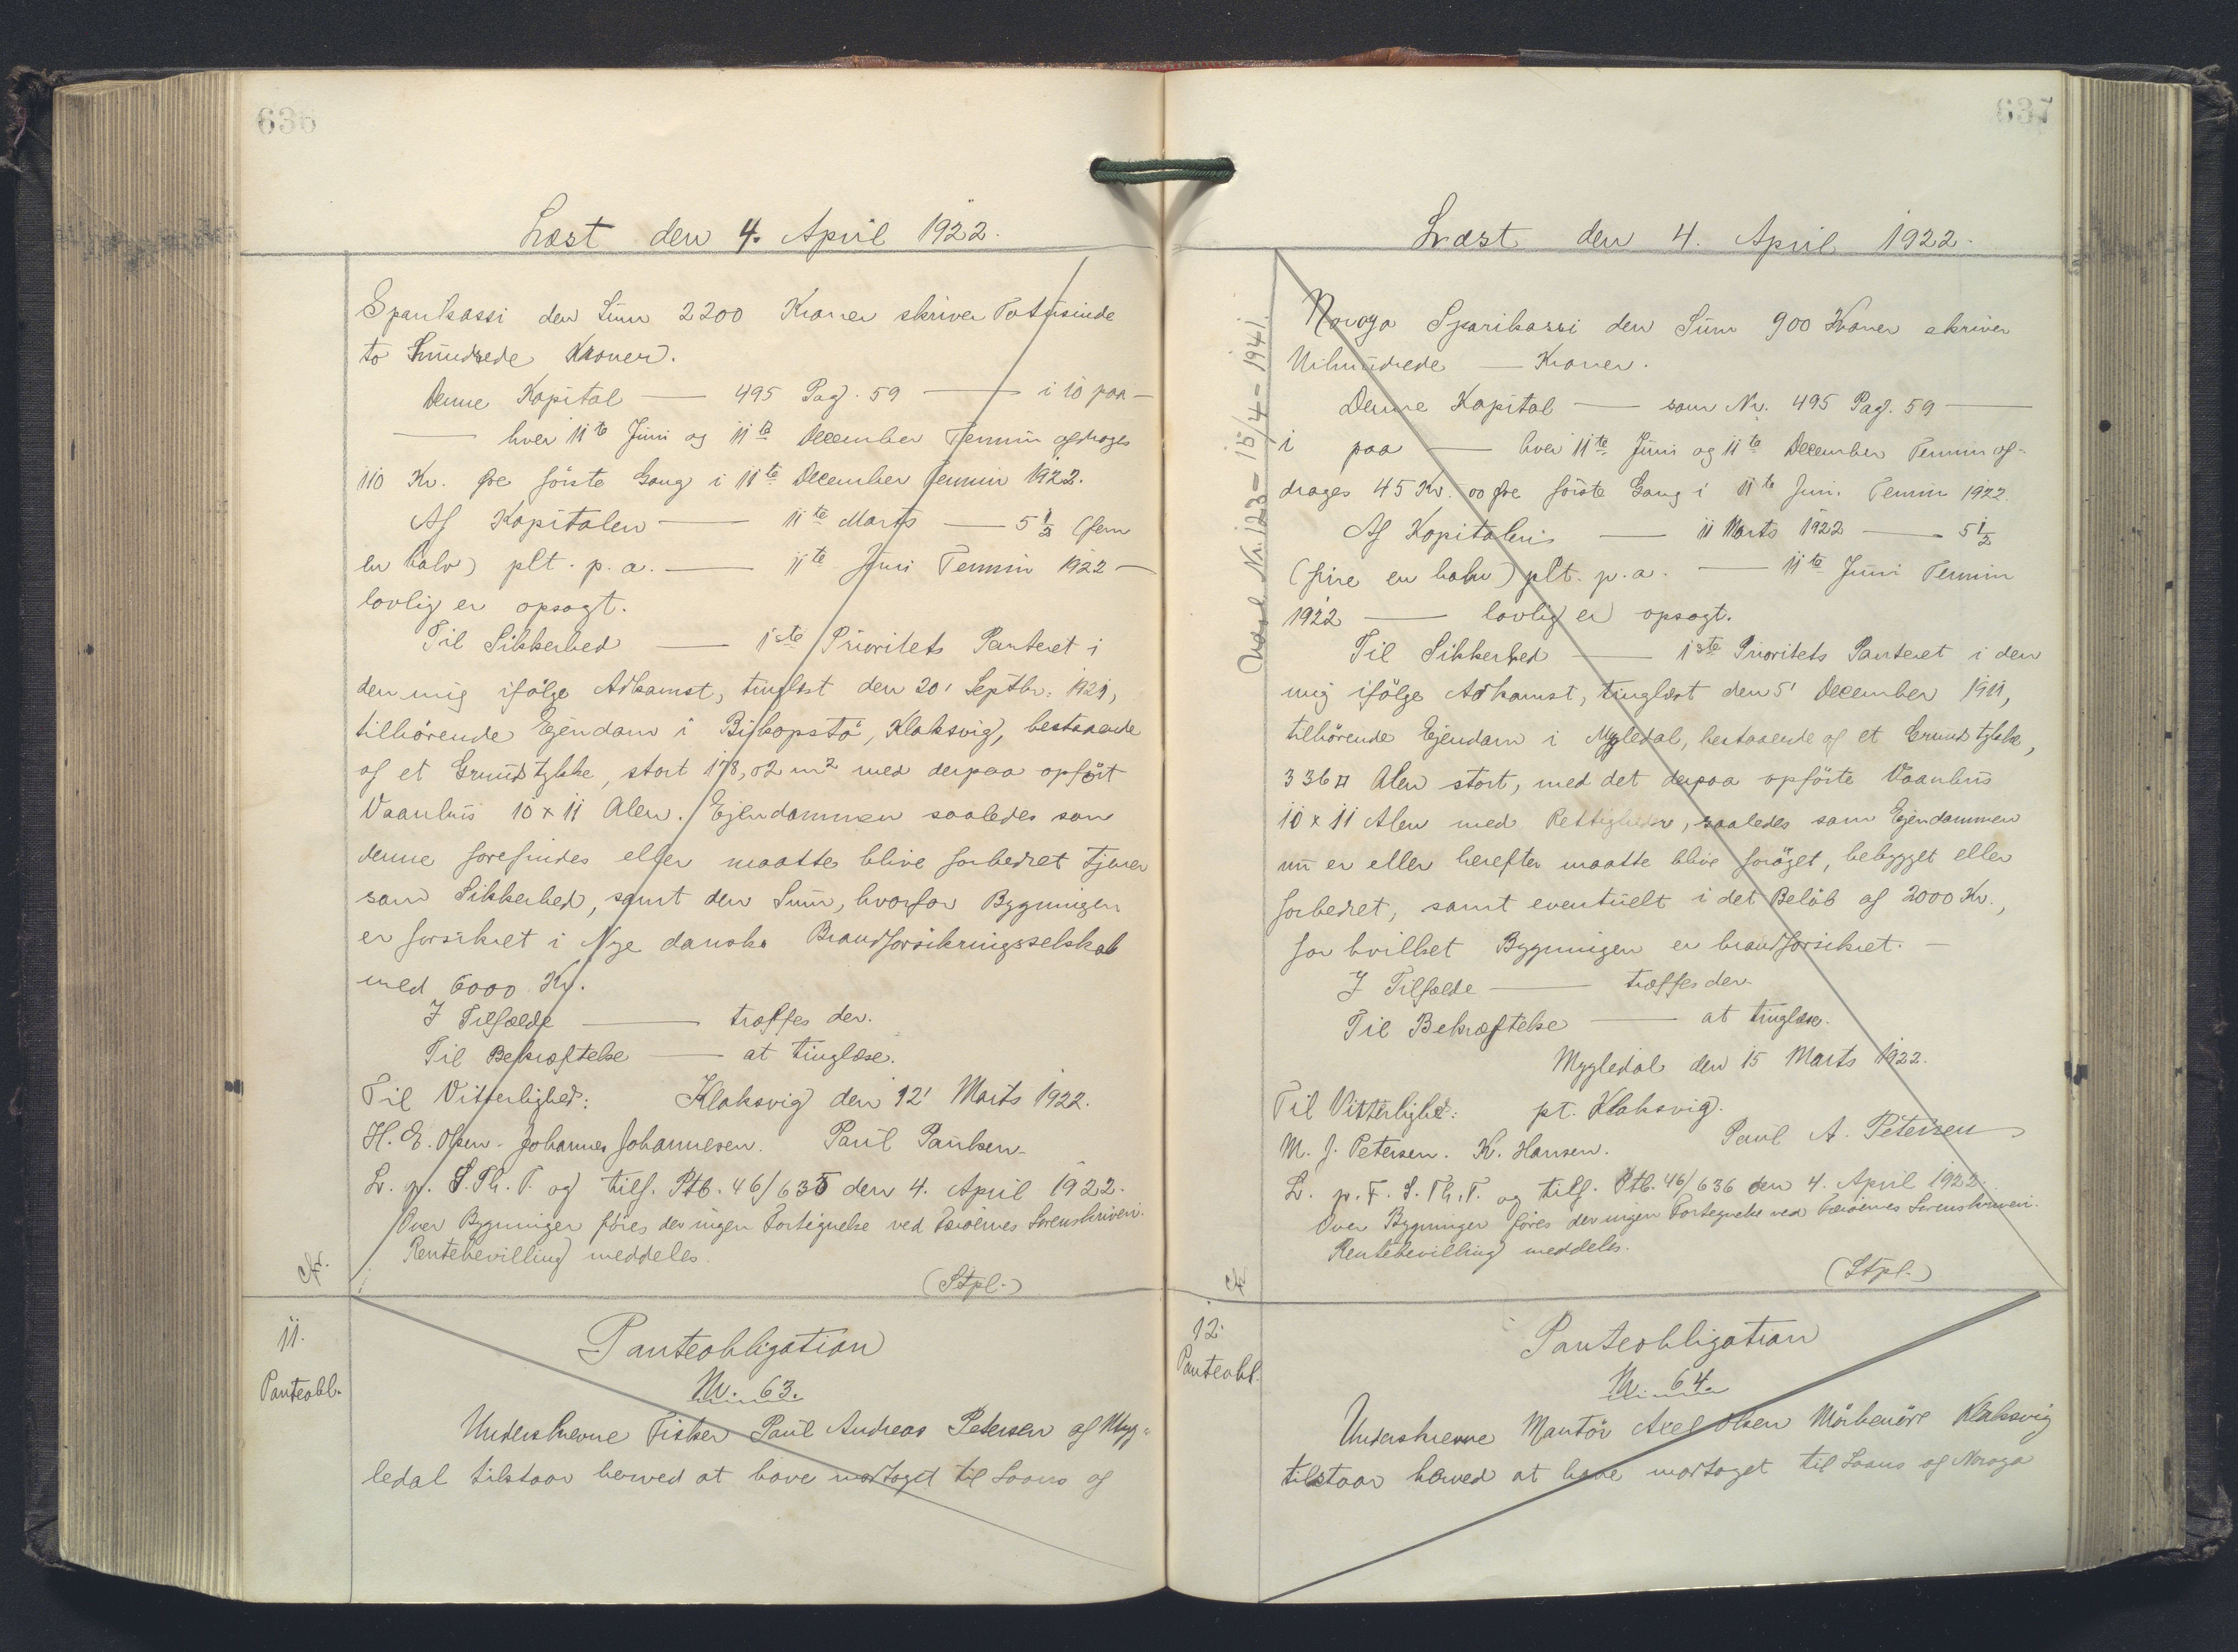 636
Læst den 4. April 1922.
Sparikassi den Sum 2200 Kroner skriver Totusinde
to Hundrede Kroner.
Denne Kapital — 495 Pag. 59 — i 10 paa —
— hver 11te Juni og 11te December Termin afdrages
110 Kr. Øre første Gang i 11te December Termin 1922.
Af Kapitalen — 11te Marts — 5 1/2 (fem
en halv) plt. p. a. — 11te Juni Termin 1922 —
lovlig er opsagt.
Til Sikkerhed — 1ste Prioritets Panteret i
den mig ifölge Adkomst, tinglæst den 20' Septbr. 1921,
tilhörende Ejendom i Biskopstö, Klaksvig, bestaaende
af et Grundstykke, stort 178,02 m² med derpaa opfört
Vaanhus 10 x 11 Alen. Ejendommen saaledes som
denne forefindes eller maatte blive forbedret tjener
som Sikkerhed, samt den Sum, hvorfor Bygningen
er forsikret i Nye danske Brandforsikringsselskab
med 6000 Kr.
I Tilfælde — træffes der.
Til Bekræftelse — at tinglæse.
Til Vitterlighed: Klaksvig den 12' Marts 1922.
H. E. Olsen. Johannes Johannesen. Paul Paulsen
L. p. S. Th. T. og tilf. Ptb. 46/635 den 4. April 1922.
Over Bygninger föres der ingen Fortegnelse ved Færöernes Sorenskriveri.
Rentebevilling meddeles.
(Stpl.)
11.
Panteobl.
Panteobligation
Nr. 63.
Underskrevne Fisker Paul Andreas Petersen af Myg-
ledal tilstaar herved at have modtaget til Laans af
637
Læst den 4. April 1922.
Noroya Sparikassi den Sum 900 Kroner skriver
Nihundrede — Kroner.
Denne Kapital — som Nr. 495 Pag. 59 —
i paa — hver 11te Juni og 11te December Termin af-
drages 45 Kr. 00 Øre förste Gang i 11te Juni Termin 1922.
Af Kapitalen — 11 Marts 1922 — 5 1/2
(fire en halv) plt. p. a. — 11te Juni Termin
1922 — lovlig er opsagt.
Til Sikkerhed — 1ste Prioritets Panteret i den
mig ifölge Adkomst, tinglæst den 5' December 1911,
tilhörende Ejendom i Mygledal, bestaaende af et Grundstykke,
336 □ Alen stort, med det derpaa opförte Vaanhus
10 x 11 Alen med Rettigheder, saaledes som Ejendommen
nu er eller herefter maatte blive foröget, bebygget eller
forbedret, samt eventuelt i det Belöb af 2000 Kr.,
for hvilket Bygningen er brandforsikret. —
I Tilfælde — træffes der.
Til Bekræftelse — at tinglæse.
Mygledal den 15 Marts 1922.
Til Vitterlighed: pt. Klaksvig.
M. J. Petersen. K. Hansen. Paul A. Petersen
L. p. F. S. Th. T. og tilf. Ptb. 46/636 den 4. April 1922.
Over Bygninger föres der ingen Fortegnelse ved Færöernes Sorenskriveri.
Rentebevilling meddeles.
(Stpl.)
Nr. 123 - 15/4 - 1941.
12.
Panteobl.
Panteobligation
Nr. 64.
Underskrevne Montör Axel Olsen Klaksvig
tilstaar herved at have modtaget til Laans af Noroya